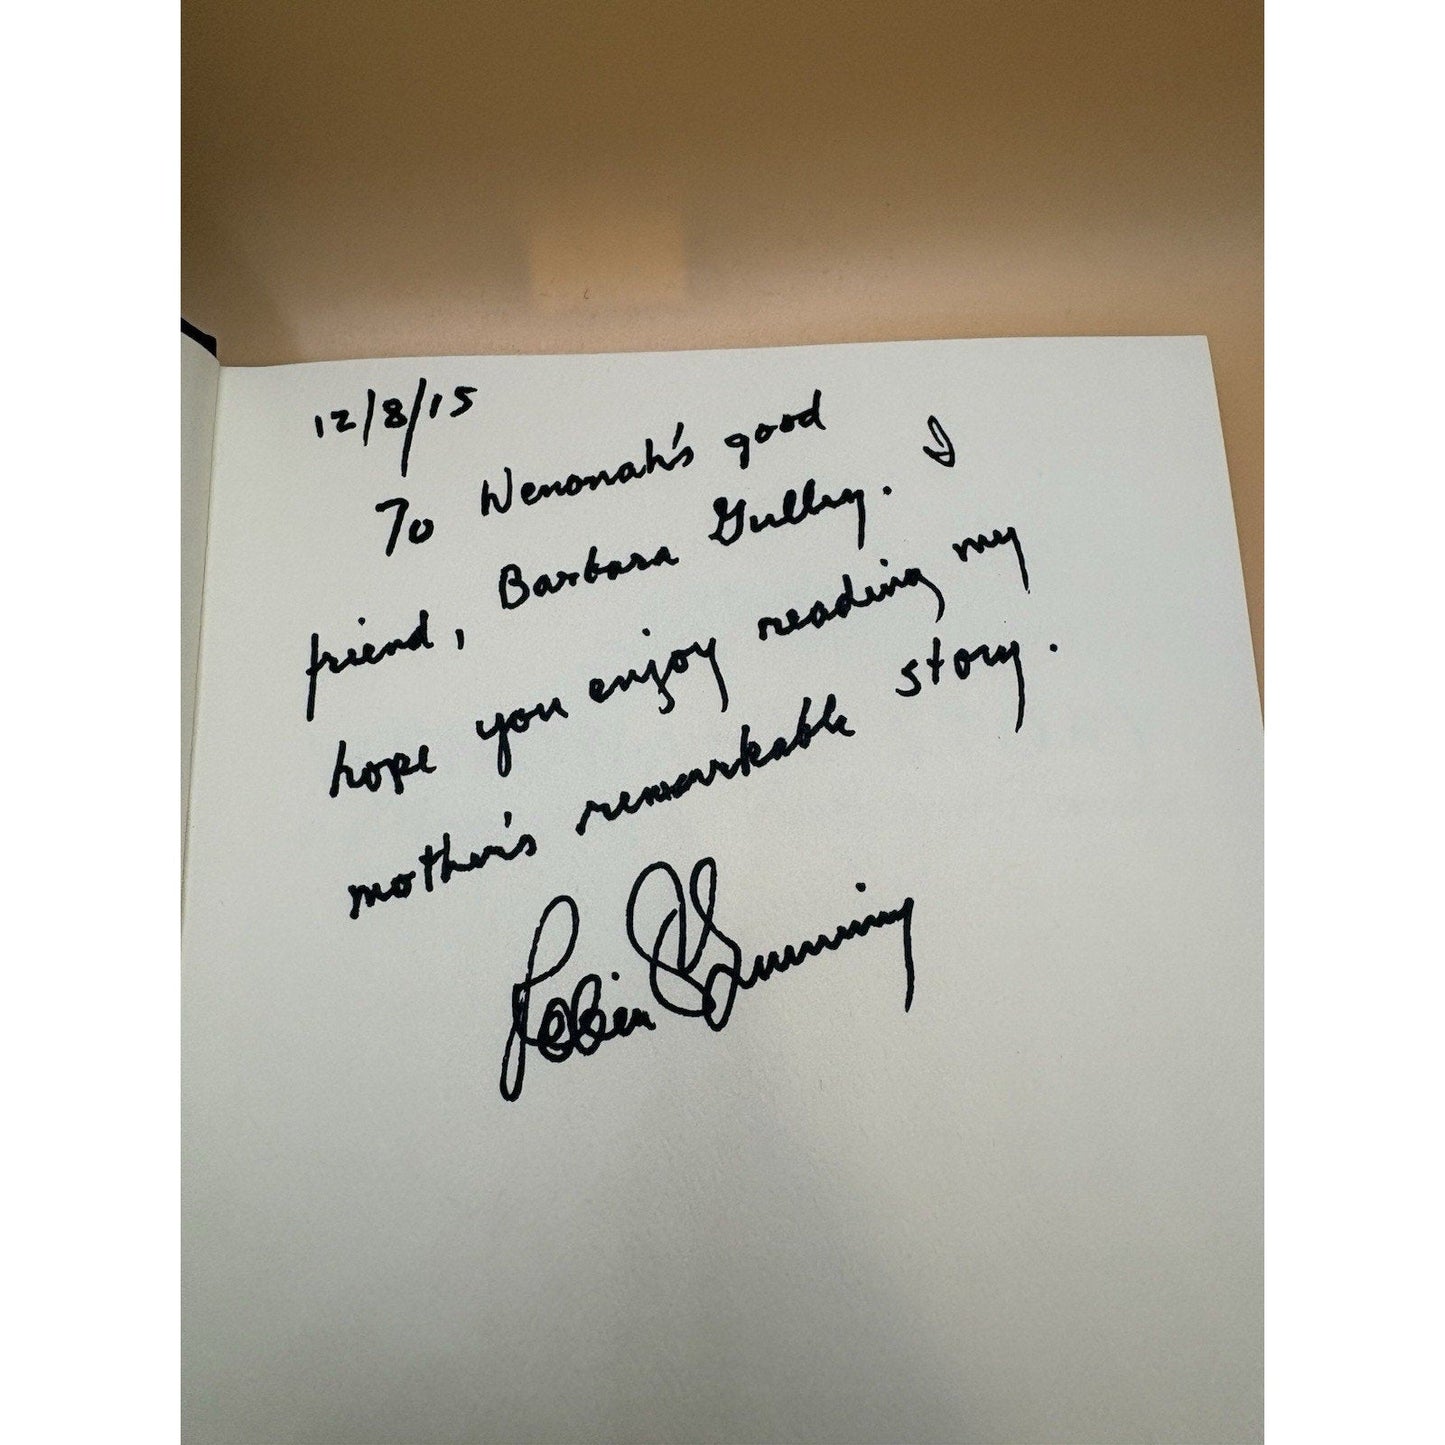 12/8/15
To Wenonah's good
friend, Barbara Gulley. I
hope you enjoy reading my
mother's remarkable story.
Robin Cumming